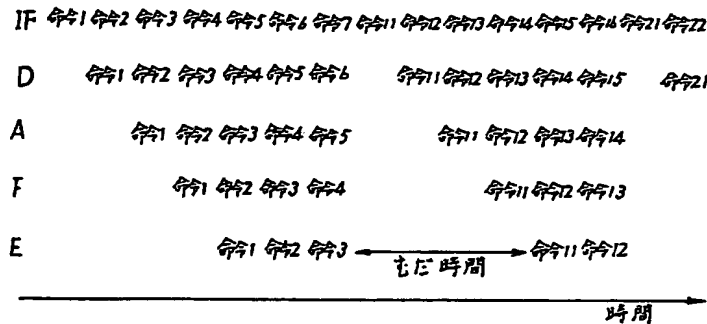 IF 命令1 命令2 命令3 命令4 命令5 命令6 命令7 命令11 命令12 命令13 命令14 命令15 命令16 命令21 命令22
D 命令1 命令2 命令3 命令4 命令5 命令6 命令11 命令12 命令13 命令14 命令15 命令21
A 命令1 命令2 命令3 命令4 命令5 命令11 命令12 命令13 命令14
F 命令1 命令2 命令3 命令4 命令11 命令12 命令13
E 命令1 命令2 命令3 むだ時間 命令11 命令12
時間